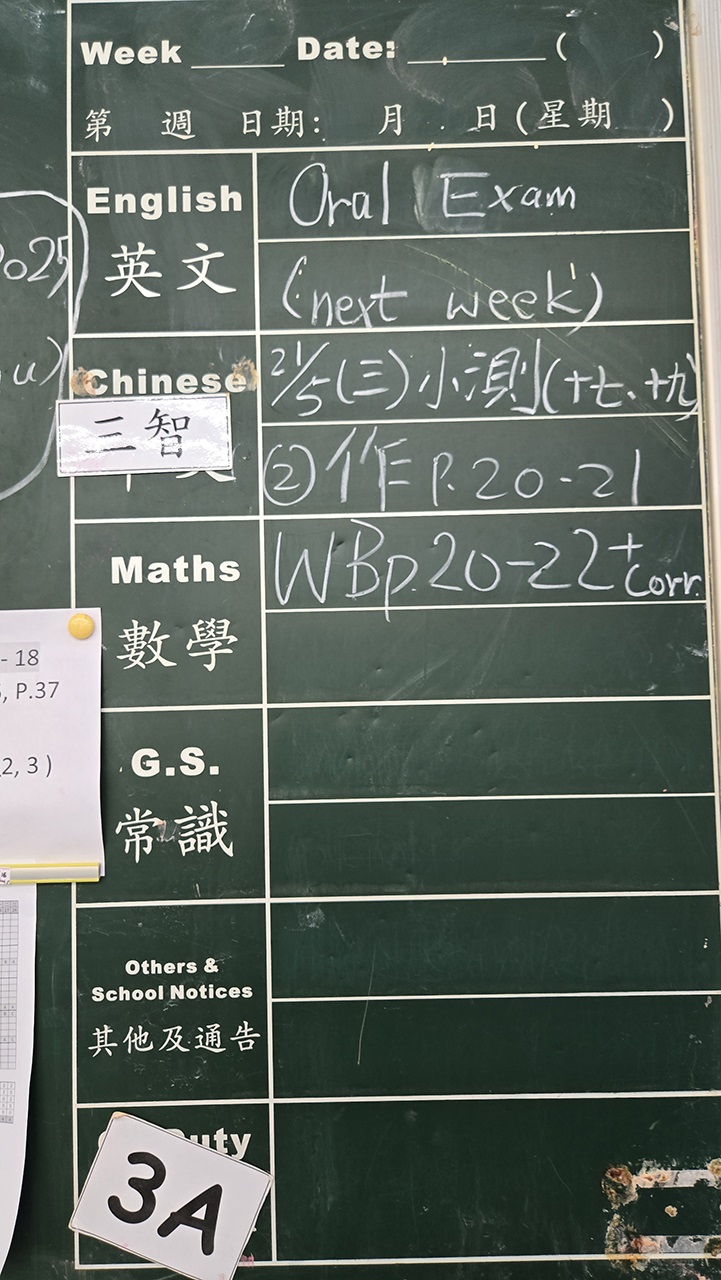 Week ____ Date: ______ ( )
第 週 日期: 月 日 (星期 )
English Oral Exam
英文 (next week)
2025
u)
Chinese 21/5(三)小測(十七、十九)
三智
②作P.20-21
Maths WBp.20-22+corr.
數學
- 18
, P.37
2, 3 )
G.S.
常識
Others &
School Notices
其他及通告
Duty
3A